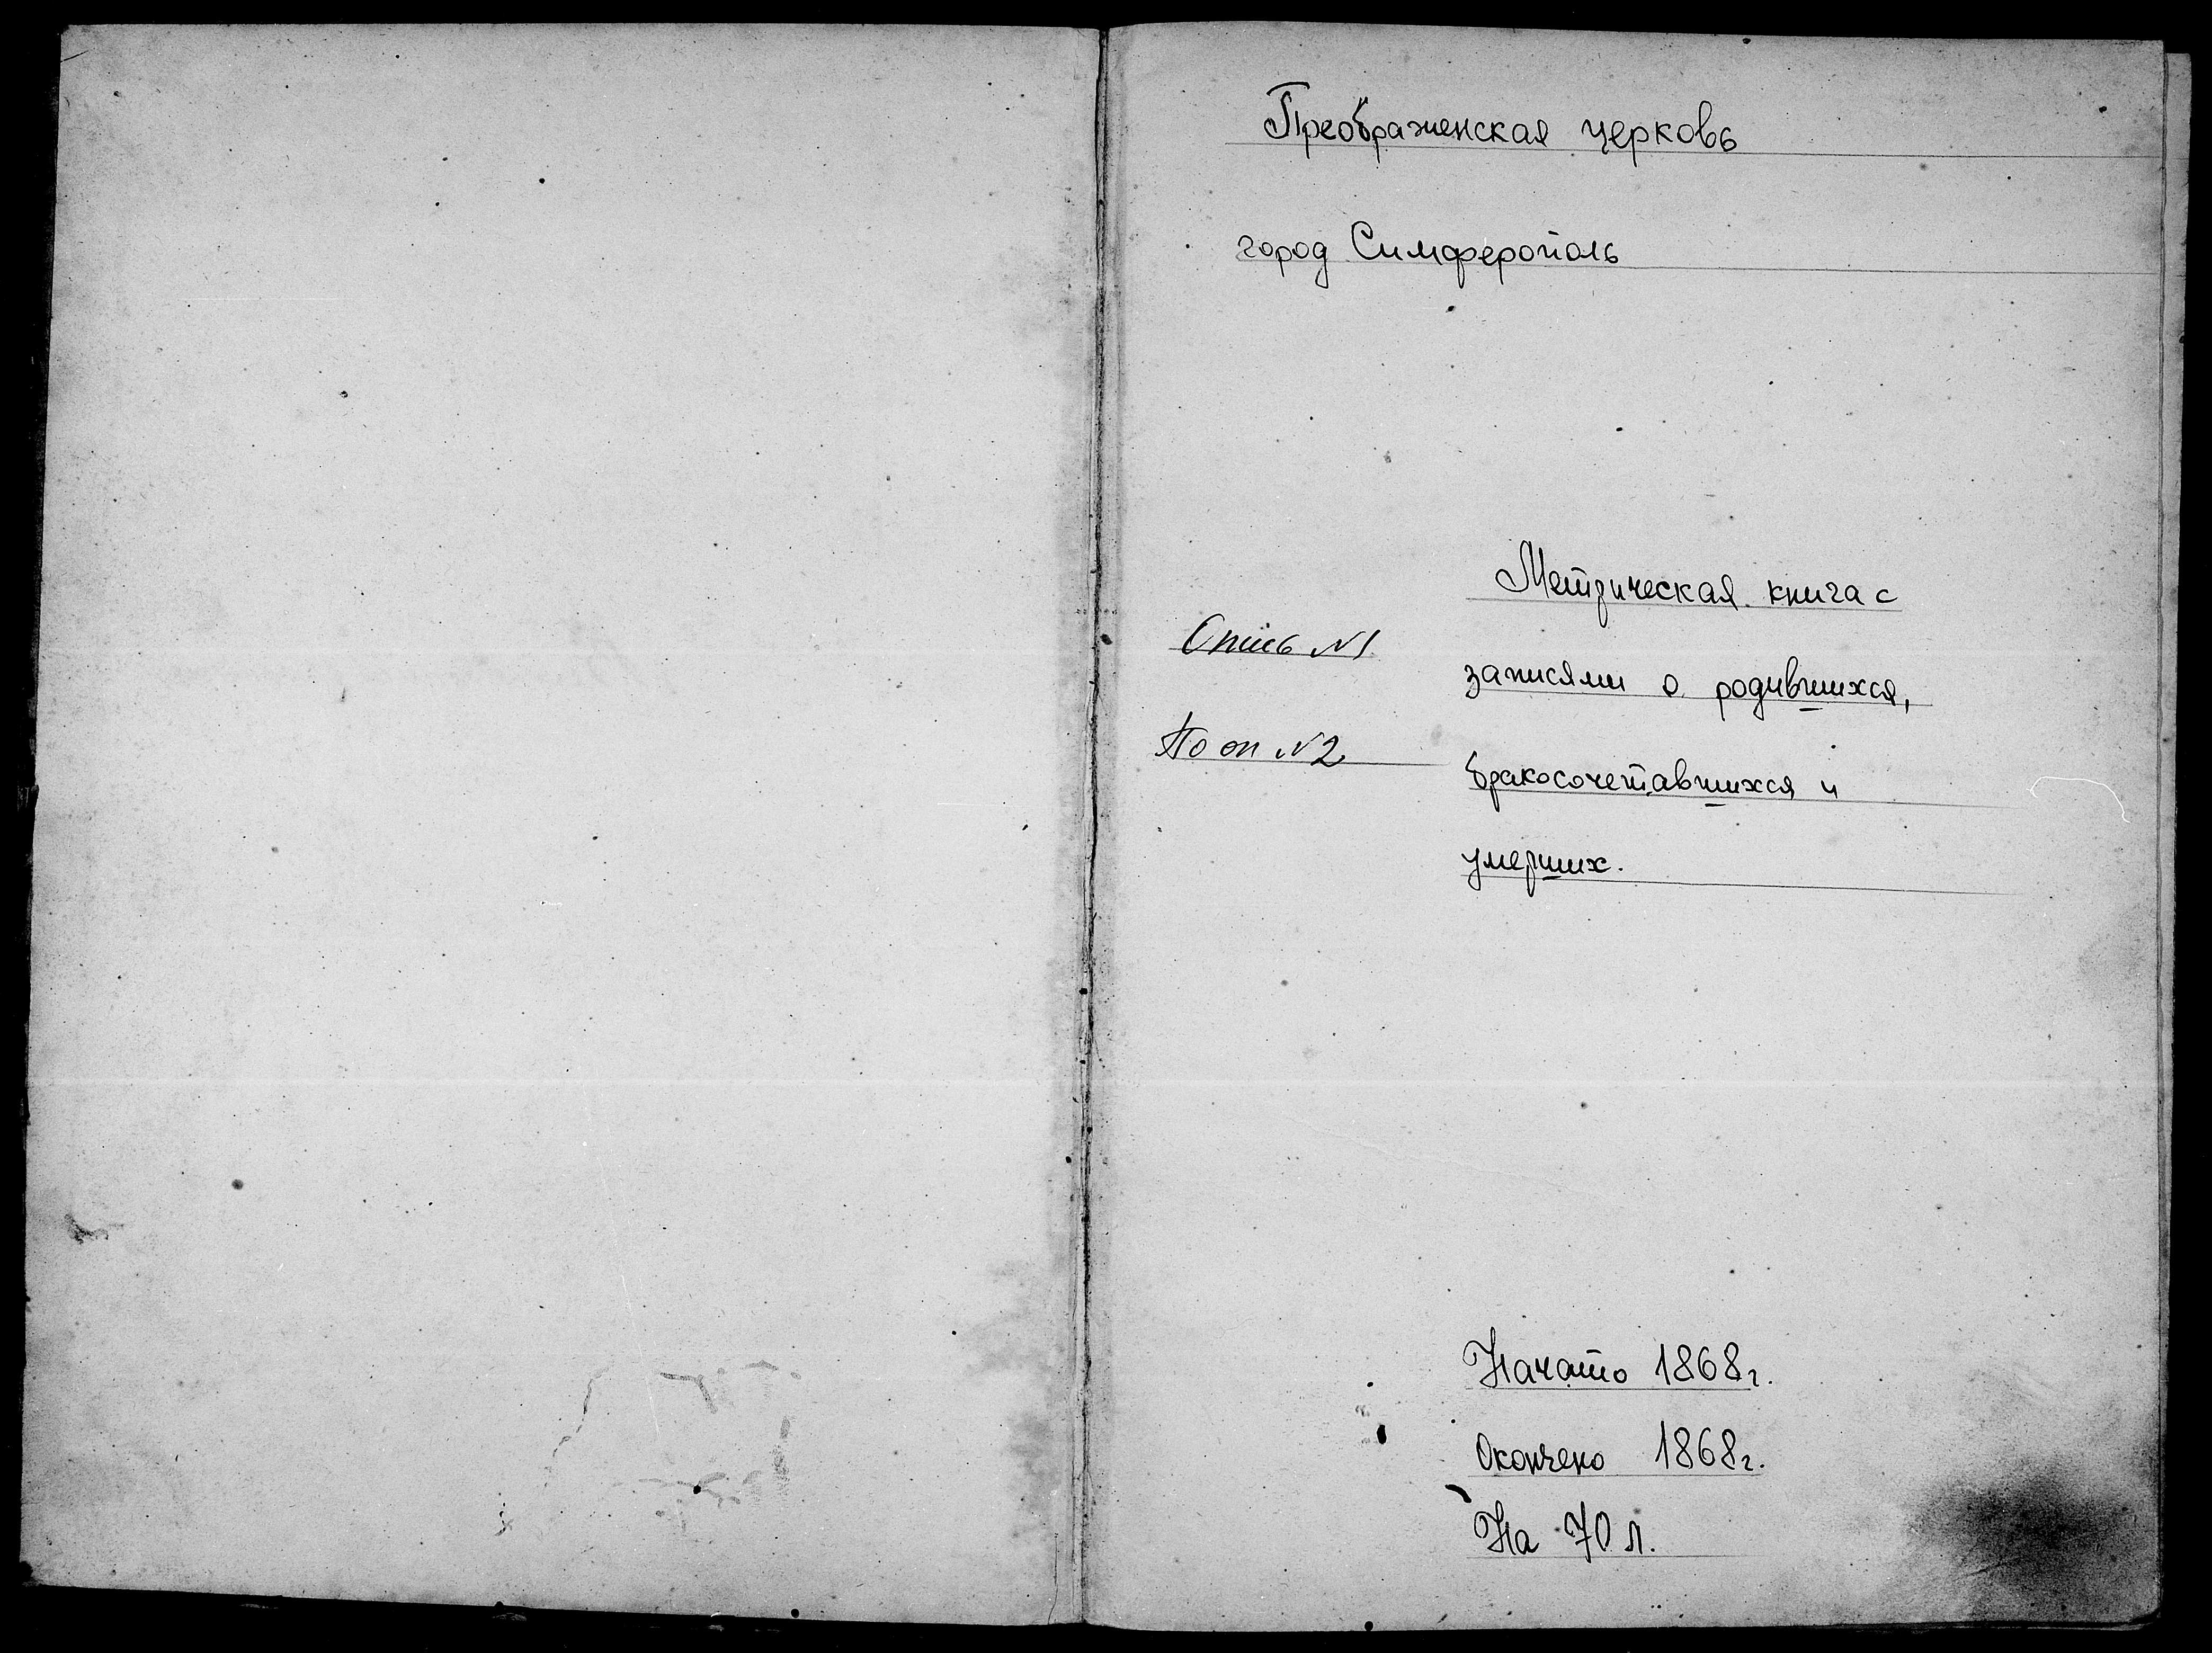 Преображенская церковь
город Симферополь
Метрическая книга с
записями о родившихся,
бракосочетавшихся и
умерших.
Опись №1
По оп №2
Начато 1868 г.
Окончено 1868 г.
На 70 л.